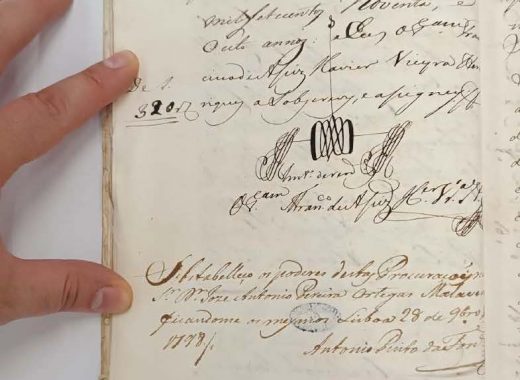 mil Setecentos Noventa, e
Outo annos: e Eu O Cam Fran
cisco de Assiz Xavier Vieyra Hen
De 1.
riques a Sobscrevy, e aSigney
320 rz
Em t.º de verd.
O Cam Fran.co de Assiz X.er V.ra H.
SubEstabelleço os poderes desta Procuração no
Sr. Dr. Joze Antonio Pereira Ortegas
ficandome os mesmos Lisboa 28 de 9bro
1798/.
Antonio Pinto da Fon